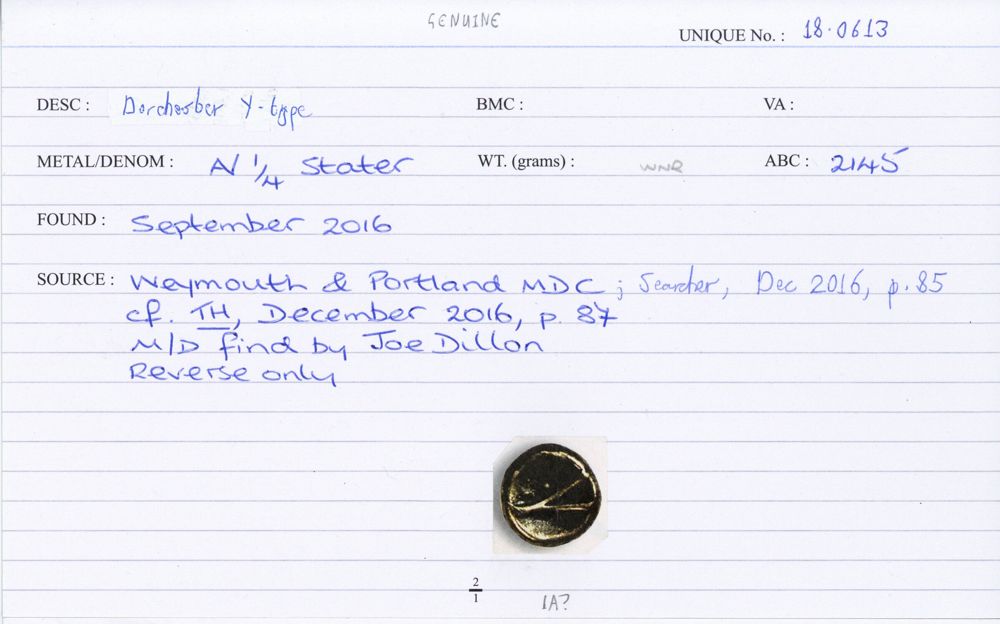 GENUINE
UNIQUE No. : 18.0613
DESC : Dorchester Y-type BMC : VA :
METAL/DENOM : A/ 1/4 Stater WT. (grams) : WNR ABC : 2145
FOUND : September 2016
SOURCE : Weymouth & Portland MDC ; Searcher, Dec 2016, p.85
cf. TH, December 2016, p. 87
M/D find by Joe Dillon
Reverse only
2
1
1A?